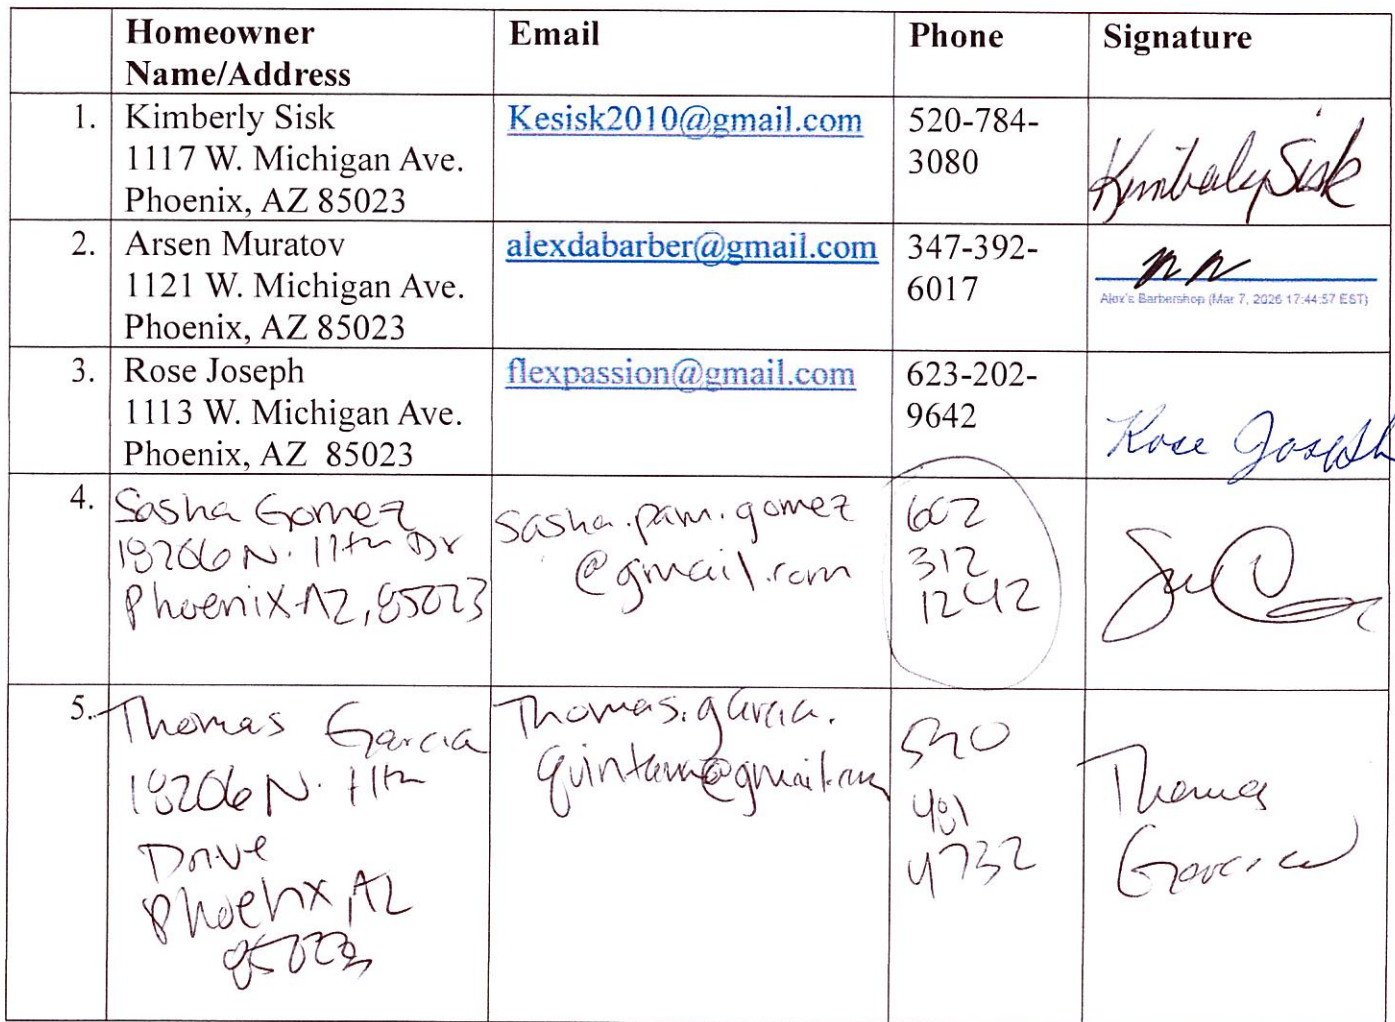 Homeowner Name/Address Email Phone Signature
1. Kimberly Sisk
1117 W. Michigan Ave.
Phoenix, AZ 85023
Kesisk2010@gmail.com
520-784-
3080
Kimberly Sisk
2. Arsen Muratov
1121 W. Michigan Ave.
Phoenix, AZ 85023
alexdabarber@gmail.com
347-392-
6017
Alex's Barbershop (Mar 7, 2026 17:44:57 EST)
3. Rose Joseph
1113 W. Michigan Ave.
Phoenix, AZ 85023
flexpassion@gmail.com
623-202-
9642
Rose Joseph
4. Sasha Gomez
18206 N. 11th Dr
Phoenix AZ, 85023
sasha.pam.gomez
@gmail.com
602
312
1242
5. Thomas Garcia
18206 N. 11th
Drive
Phoenix, AZ
85023
Thomas.garcia.
quintana@gmail.com
520
481
4732
Thomas
Garcia